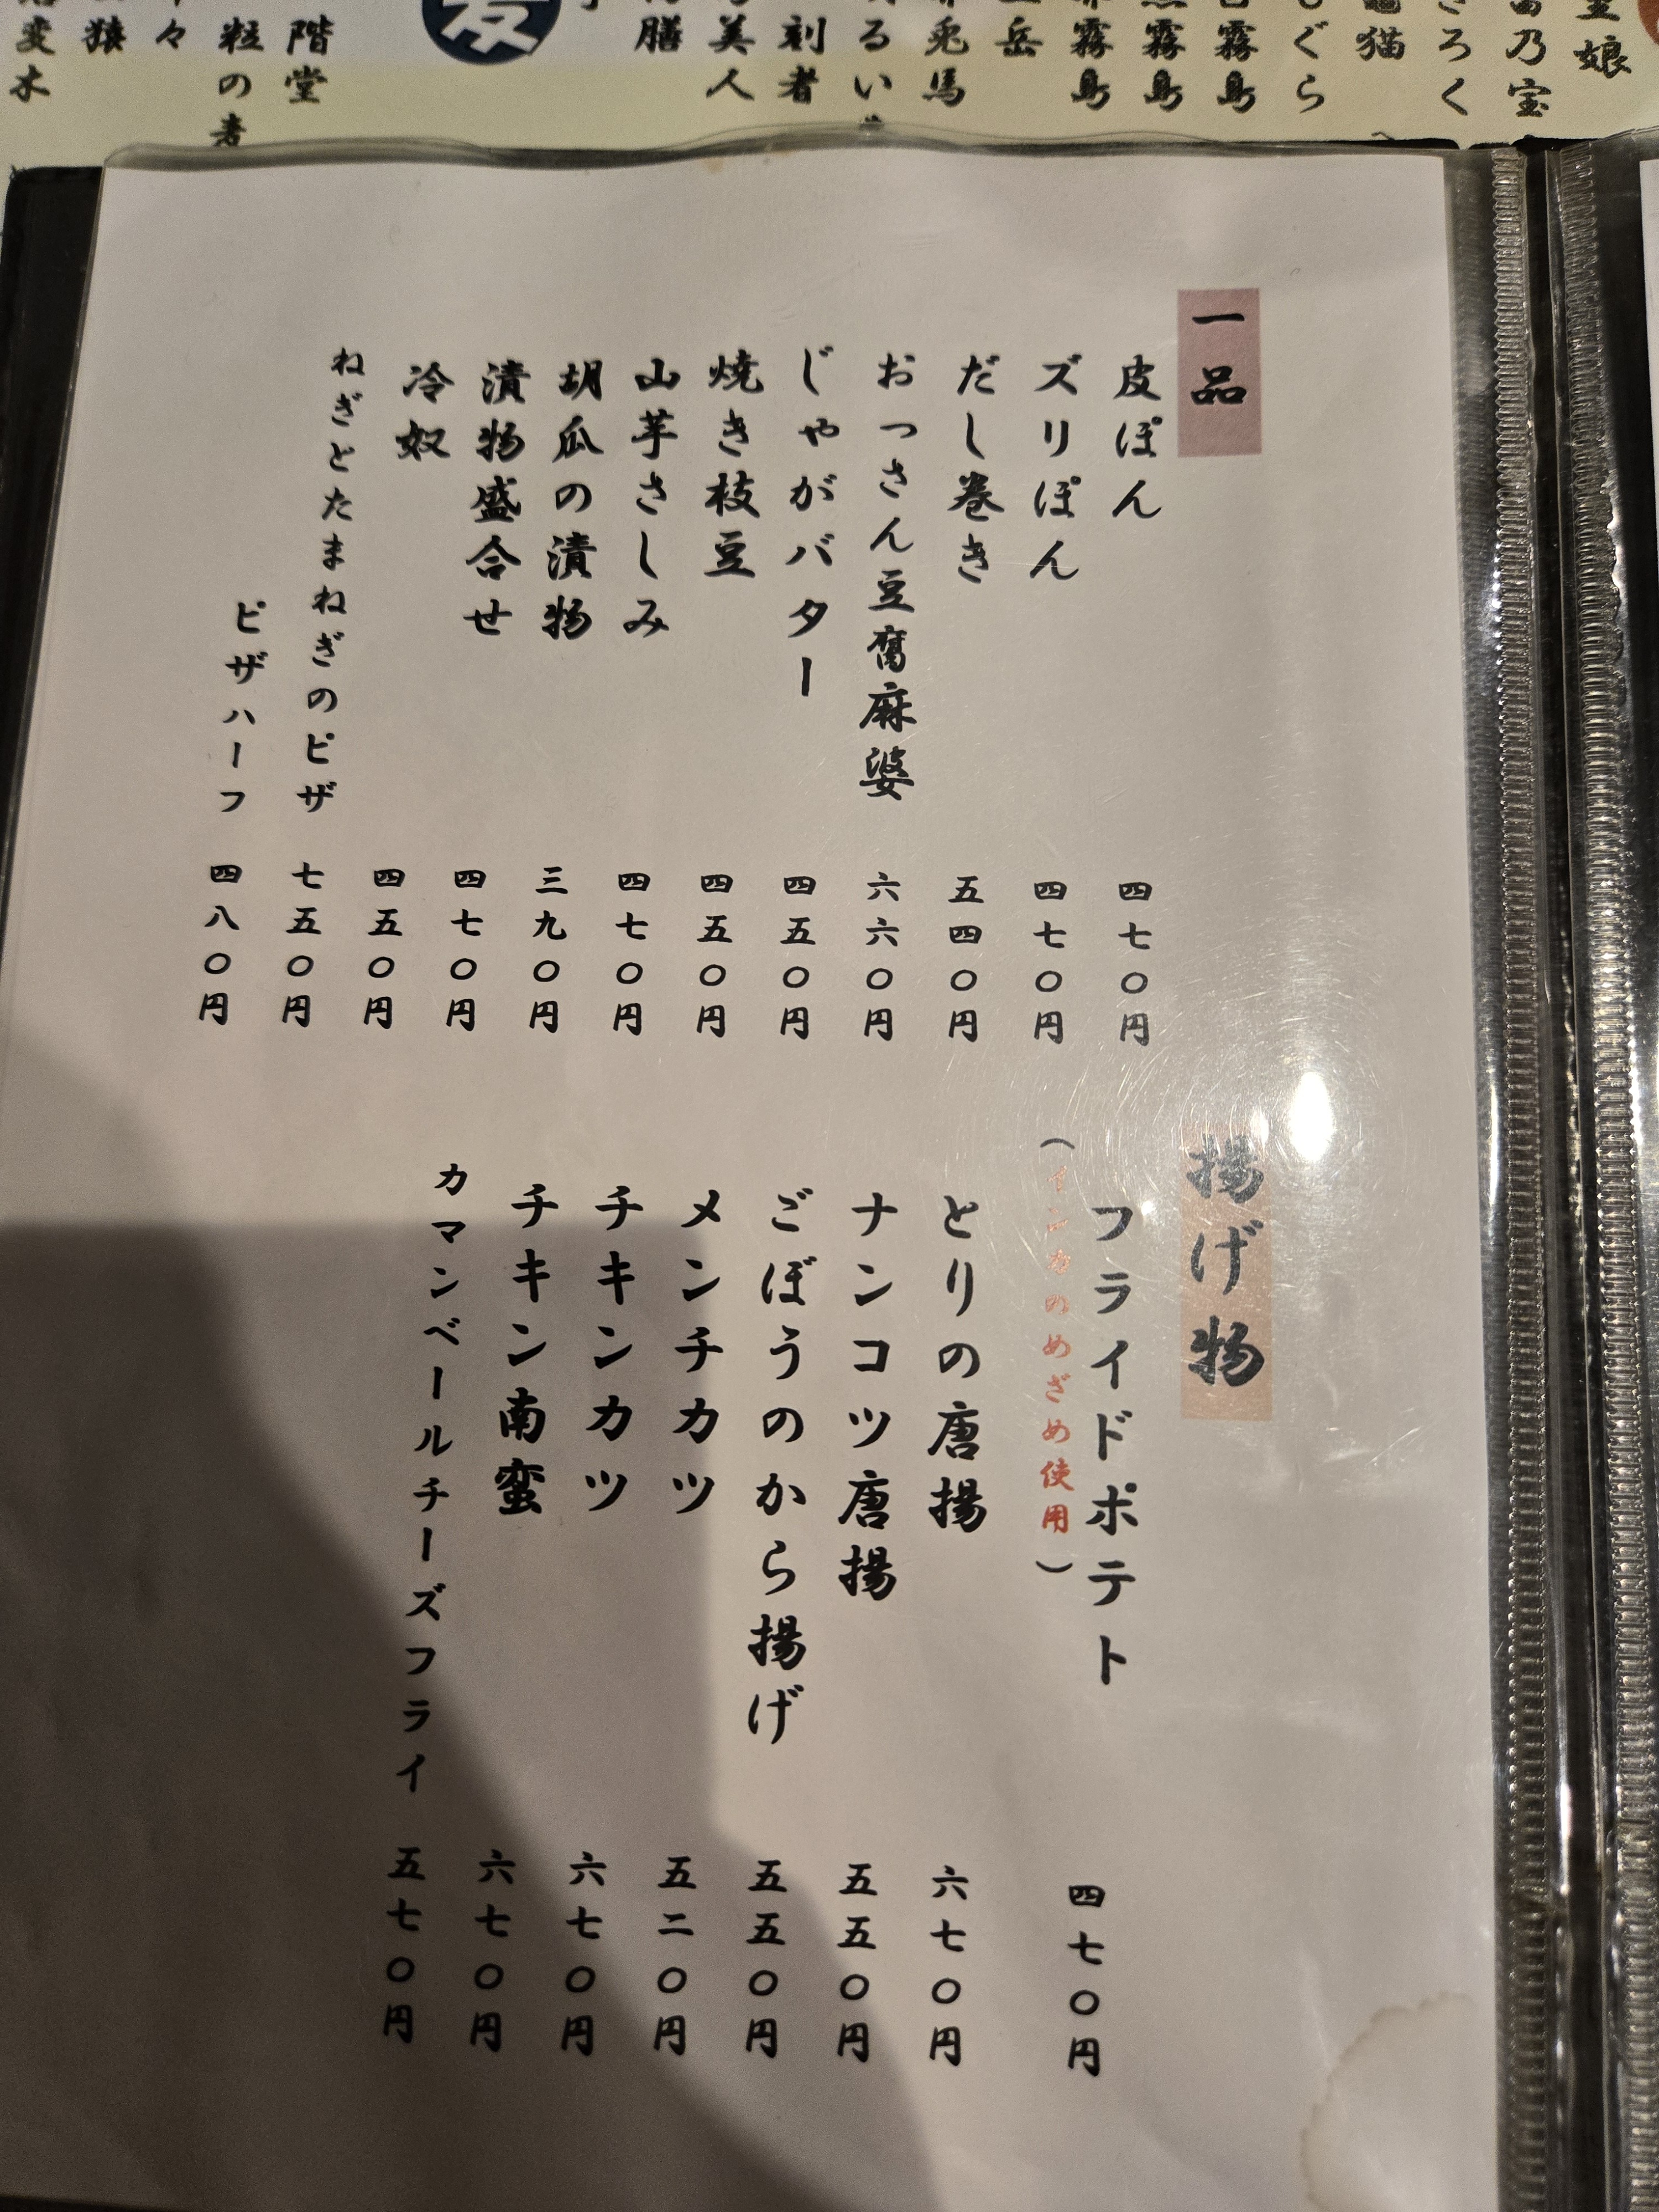 階堂
粒の者
々
猿
変木
膳
美人
刻者
るい
兎馬
岳
霧島
霧島
霧島
ぐら
猫
ろく
乃宝
娘
一品
皮ぽん 四七〇円
ズリぽん 四七〇円
だし巻き 五四〇円
おっさん豆腐麻婆 六六〇円
じゃがバター 四五〇円
焼き枝豆 四五〇円
山芋さしみ 四七〇円
胡瓜の漬物 三九〇円
漬物盛合せ 四七〇円
冷奴 四五〇円
ねぎとたまねぎのピザ 七五〇円
ピザハーフ 四八〇円
揚げ物
フライドポテト 四七〇円
(インカのめざめ使用)
とりの唐揚 六七〇円
ナンコツ唐揚 五五〇円
ごぼうのから揚げ 五五〇円
メンチカツ 五二〇円
チキンカツ 六七〇円
チキン南蛮 六七〇円
カマンベールチーズフライ 五七〇円